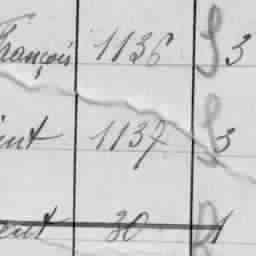 François 1136 S 3
ent 1137 S 3
ent 30 1